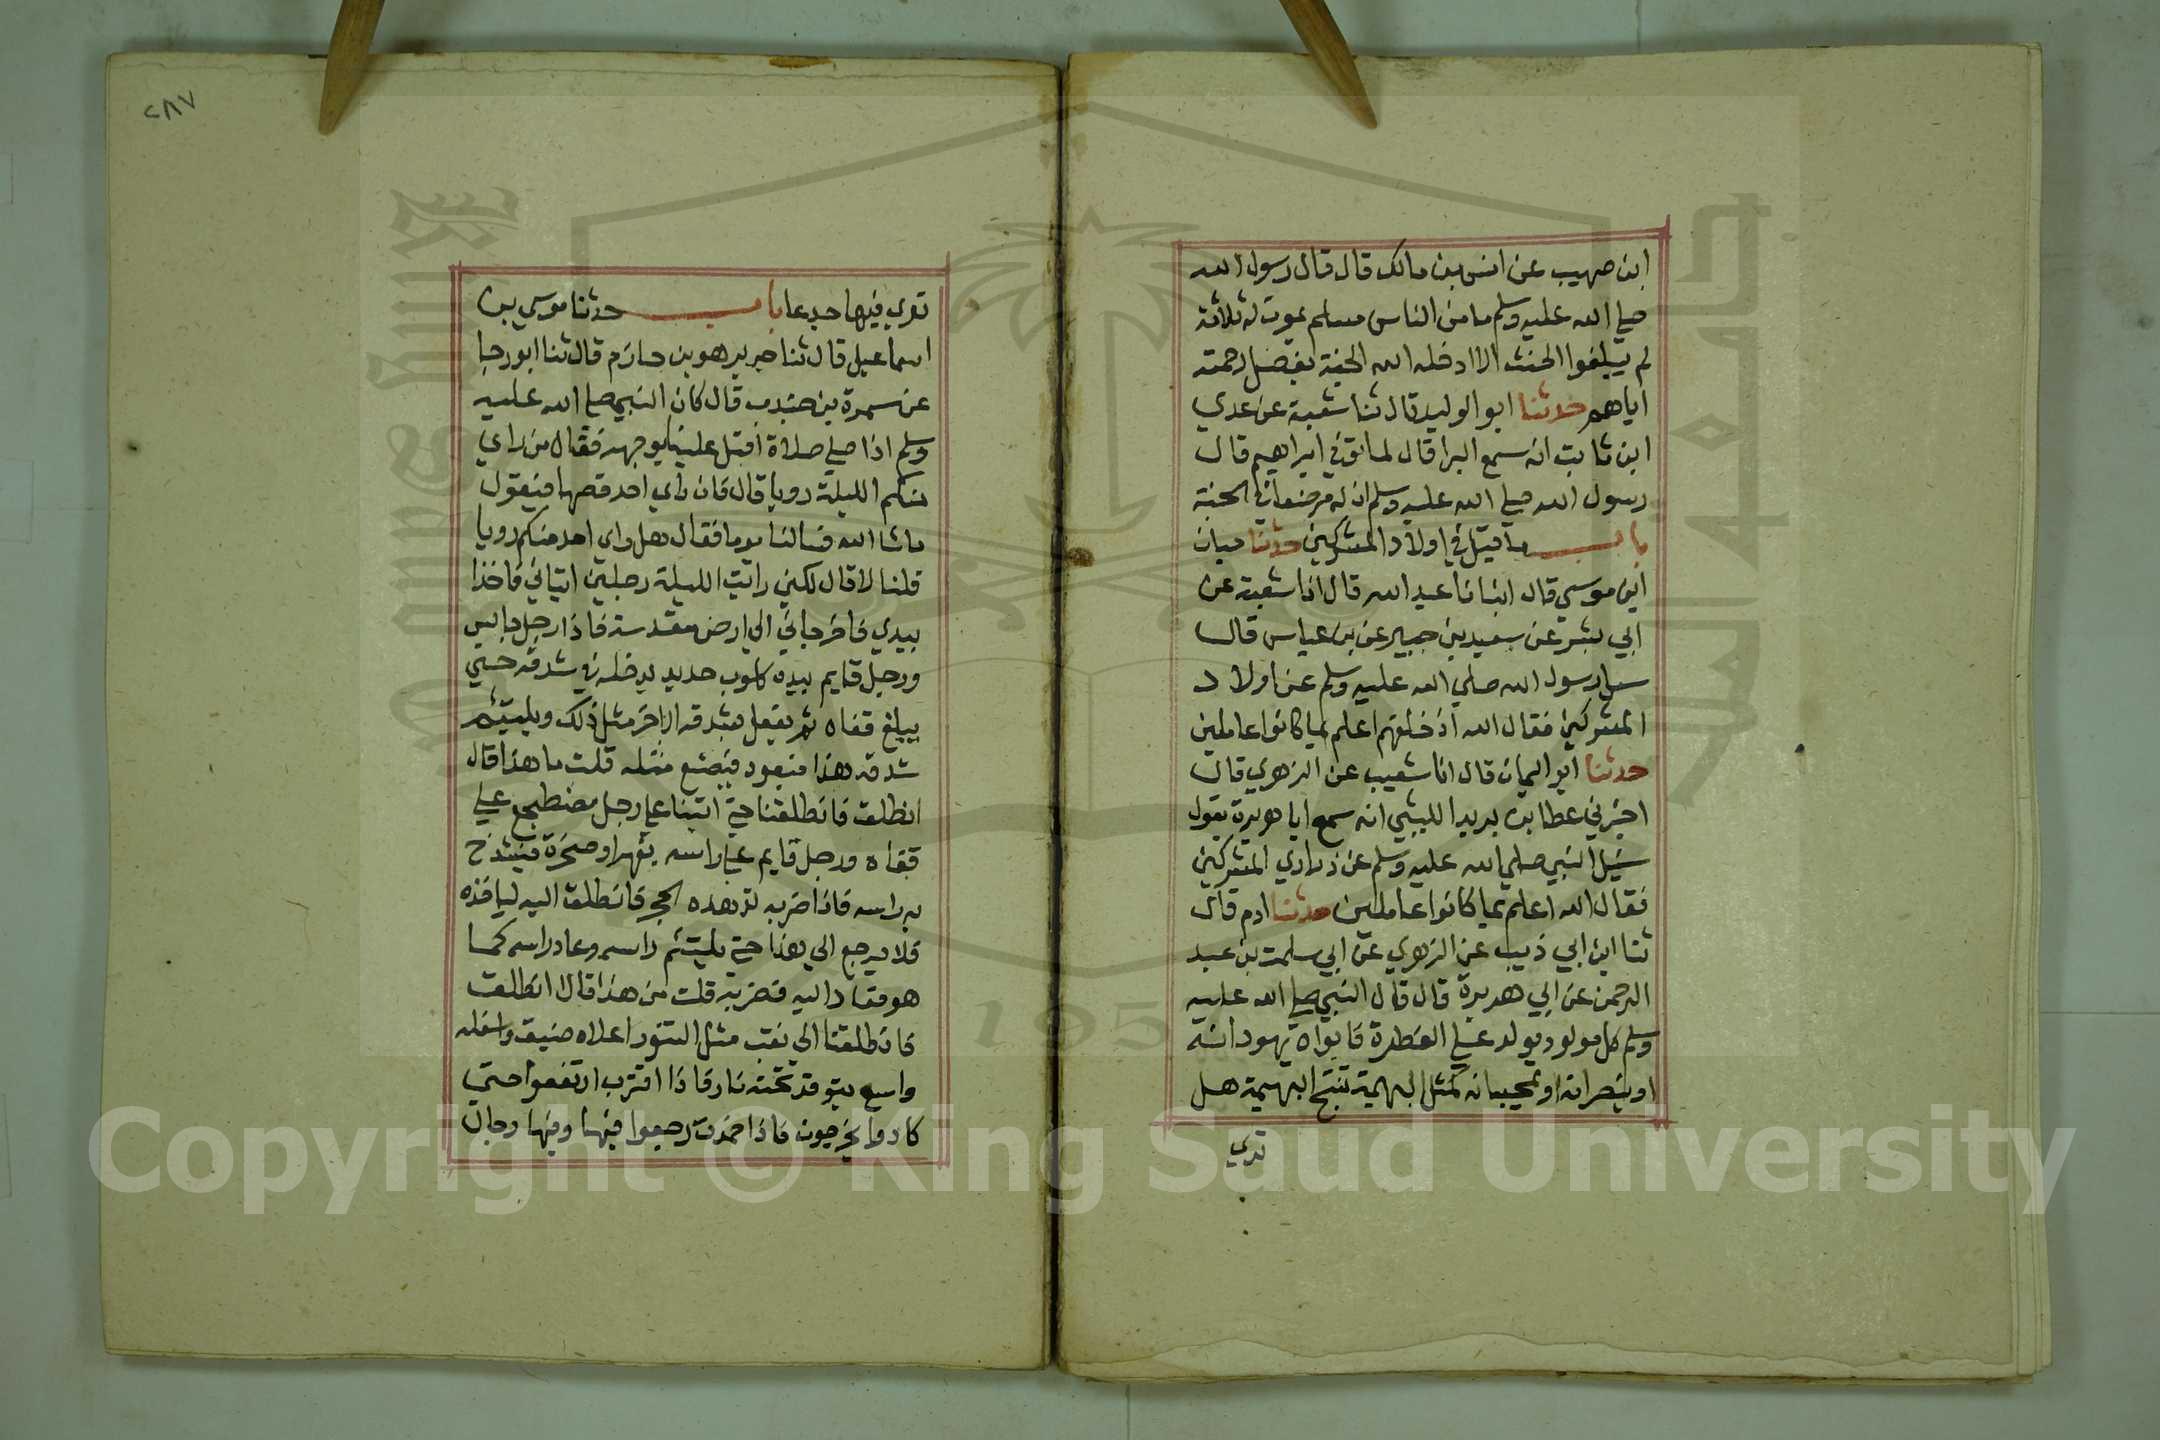 ابن صهيب عن انس بن مالك قال قال رسول الله
صلى الله عليه وسلم ما من الناس مسلم يموت له ثلاثة
لم يبلغوا الحنث الا ادخله الله الجنة بفضل رحمته
اياهم حدثنا ابو الوليد قال ثنا شعبة عن عدي
ابن ثابت انه سمع البرا قال لما توفي ابراهيم قال
رسول الله صلى الله عليه وسلم ان له مرضعا في الجنة
باب ما قيل في اولاد المشركين حدثنا حبان
ابن موسي قال انبانا عبد الله قال انا شعبة عن
ابي بشر عن سعيد بن جبير عن بن عباس قال
سيل رسول الله صلي الله عليه وسلم عن اولاد
المشركين فقال الله اذ خلقهم اعلم بما كانوا عاملين
حدثنا ابو اليمان قال انا شعيب عن الزهري قال
اخبرني عطا بن يزيد الليثي انه سمع ابا هريرة يقول
سيل النبي صلي الله عليه وسلم عن ذراري المشركين
فقال الله اعلم بما كانوا عاملين حدثنا ادم قال
ثنا ابن ابي ذيب عن الزهري عن ابي سلمة بن عبد
الرحمن عن ابي هريرة قال قال النبي صلى الله عليه
وسلم كل مولود يولد على الفطرة فابواه يهودانه
او ينصرانه او يمجسانه كمثل البهيمة تنتج البهيمة هل
تري
٢٨٧
تري فيها جدعا باب حدثنا موسي بن
اسماعيل قال ثنا جرير هو بن حازم قال ثنا ابو رجا
عن سمرة بن جندب قال كان النبي صلى الله عليه
وسلم اذا صلى صلاة اقبل علينا بوجهه فقال من راي
منكم الليلة رويا قال فان راي احد قصها فيقول
ماشا الله فسالنا يوما فقال هل راي احد منكم رويا
قلنا لا قال لكني رايت الليلة رجلين اتياني فاخذا
بيدي فاخرجاني الي ارض مقدسة فاذا رجل جالس
ورجل قايم بيده كلوب حديد يدخله في شدقه حتي
يبلغ قفاه ثم يفعل بشدقه الاخر مثل ذلك ويلتيم
شدقه هذا فيعود فيصنع مثله قلت ما هذا قال
انطلق فانطلقنا حتى اتينا على رجل مضطجع على
قفاه ورجل قايم على راسه بفهر او صخرة فيشدخ
به راسه فاذا ضربه تدهده الحجر فانطلق اليه لياخذه
فلا يرجع الي هذا حتى يلتيم راسه وعاد راسه كما
هو فعاد اليه فضربه قلت من هذا قالا انطلق
فانطلقنا الى نقب مثل التنور اعلاه ضيق واسفله
واسع يتوقد تحته نار فاذا اقترب ارتفعوا حتي
كادوا يخرجون فاذا خمدت رجعوا فيها وفيها رجال
Copyright © King Saud University
1957